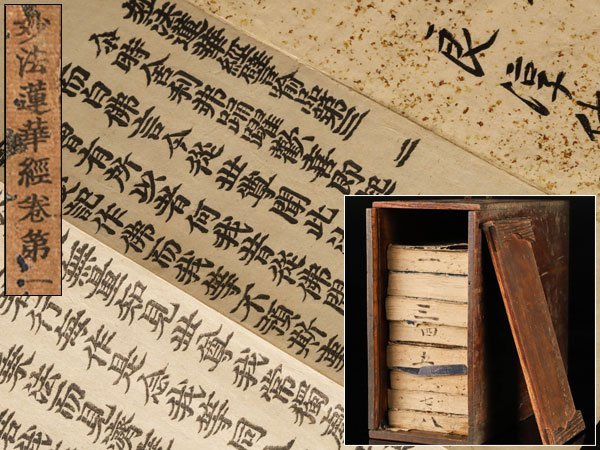 妙法蓮華經卷第
良淳
妙法蓮華經譬喻品第三 二
尒時舍利弗踊躍歡喜即起
而白佛言今從世尊聞此
曾有所以者何我昔從佛聞
記作佛而我等不預斯事
無量知見世尊我常獨處
行每作是念我等同
法而見濟
三
四